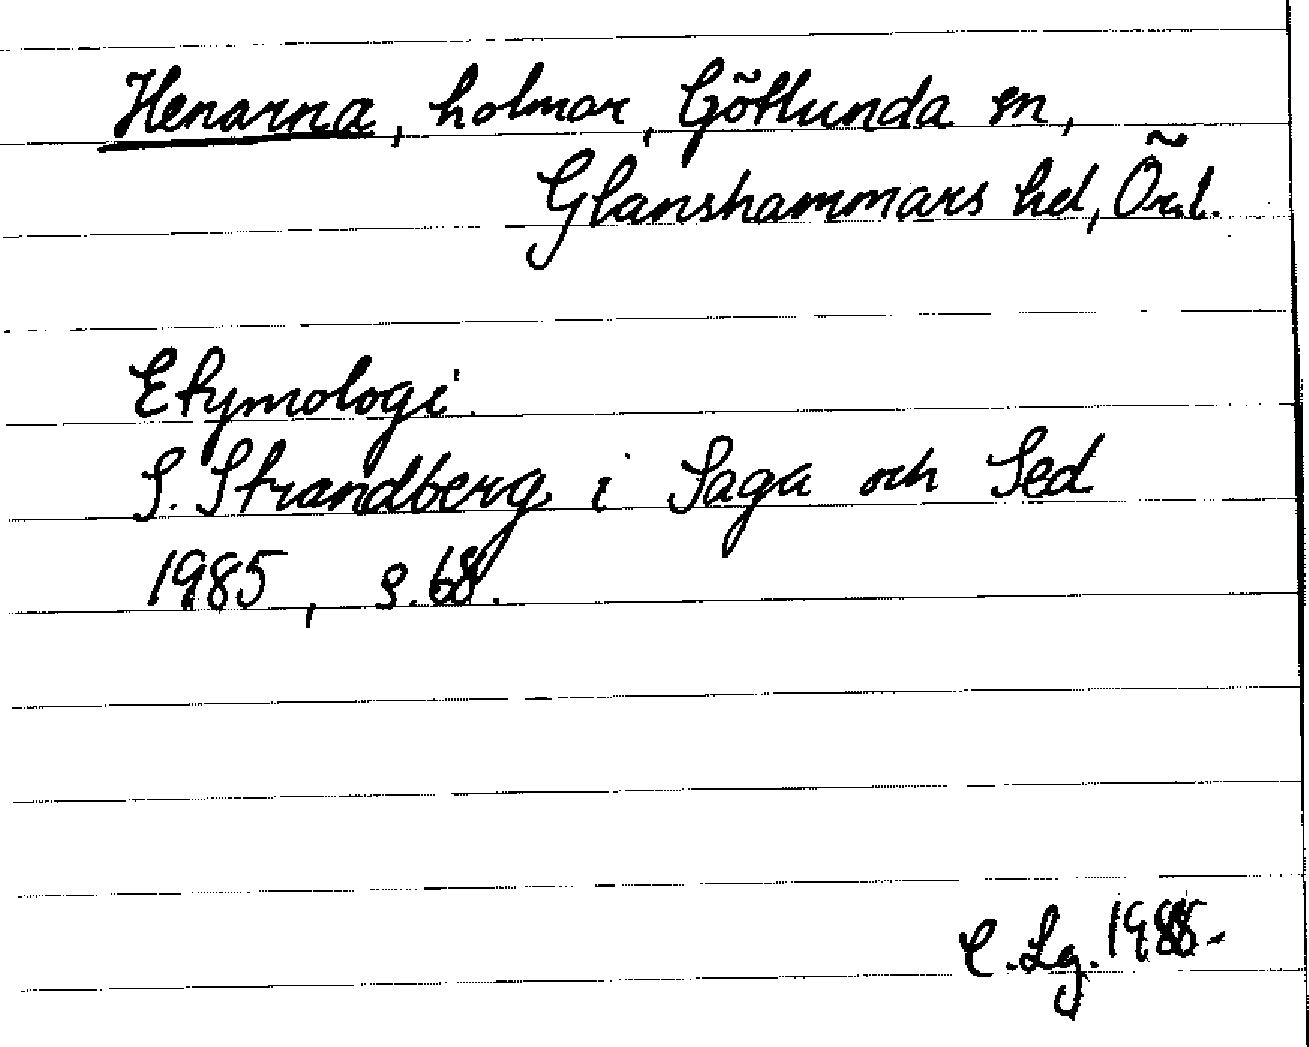 Henarna, holmar, Götlunda sn,
Glanshammars hd, Ör.l.
Etymologi.
S. Strandberg i Saga och Sed
1985, s. 68.
C. Lg. 1988.